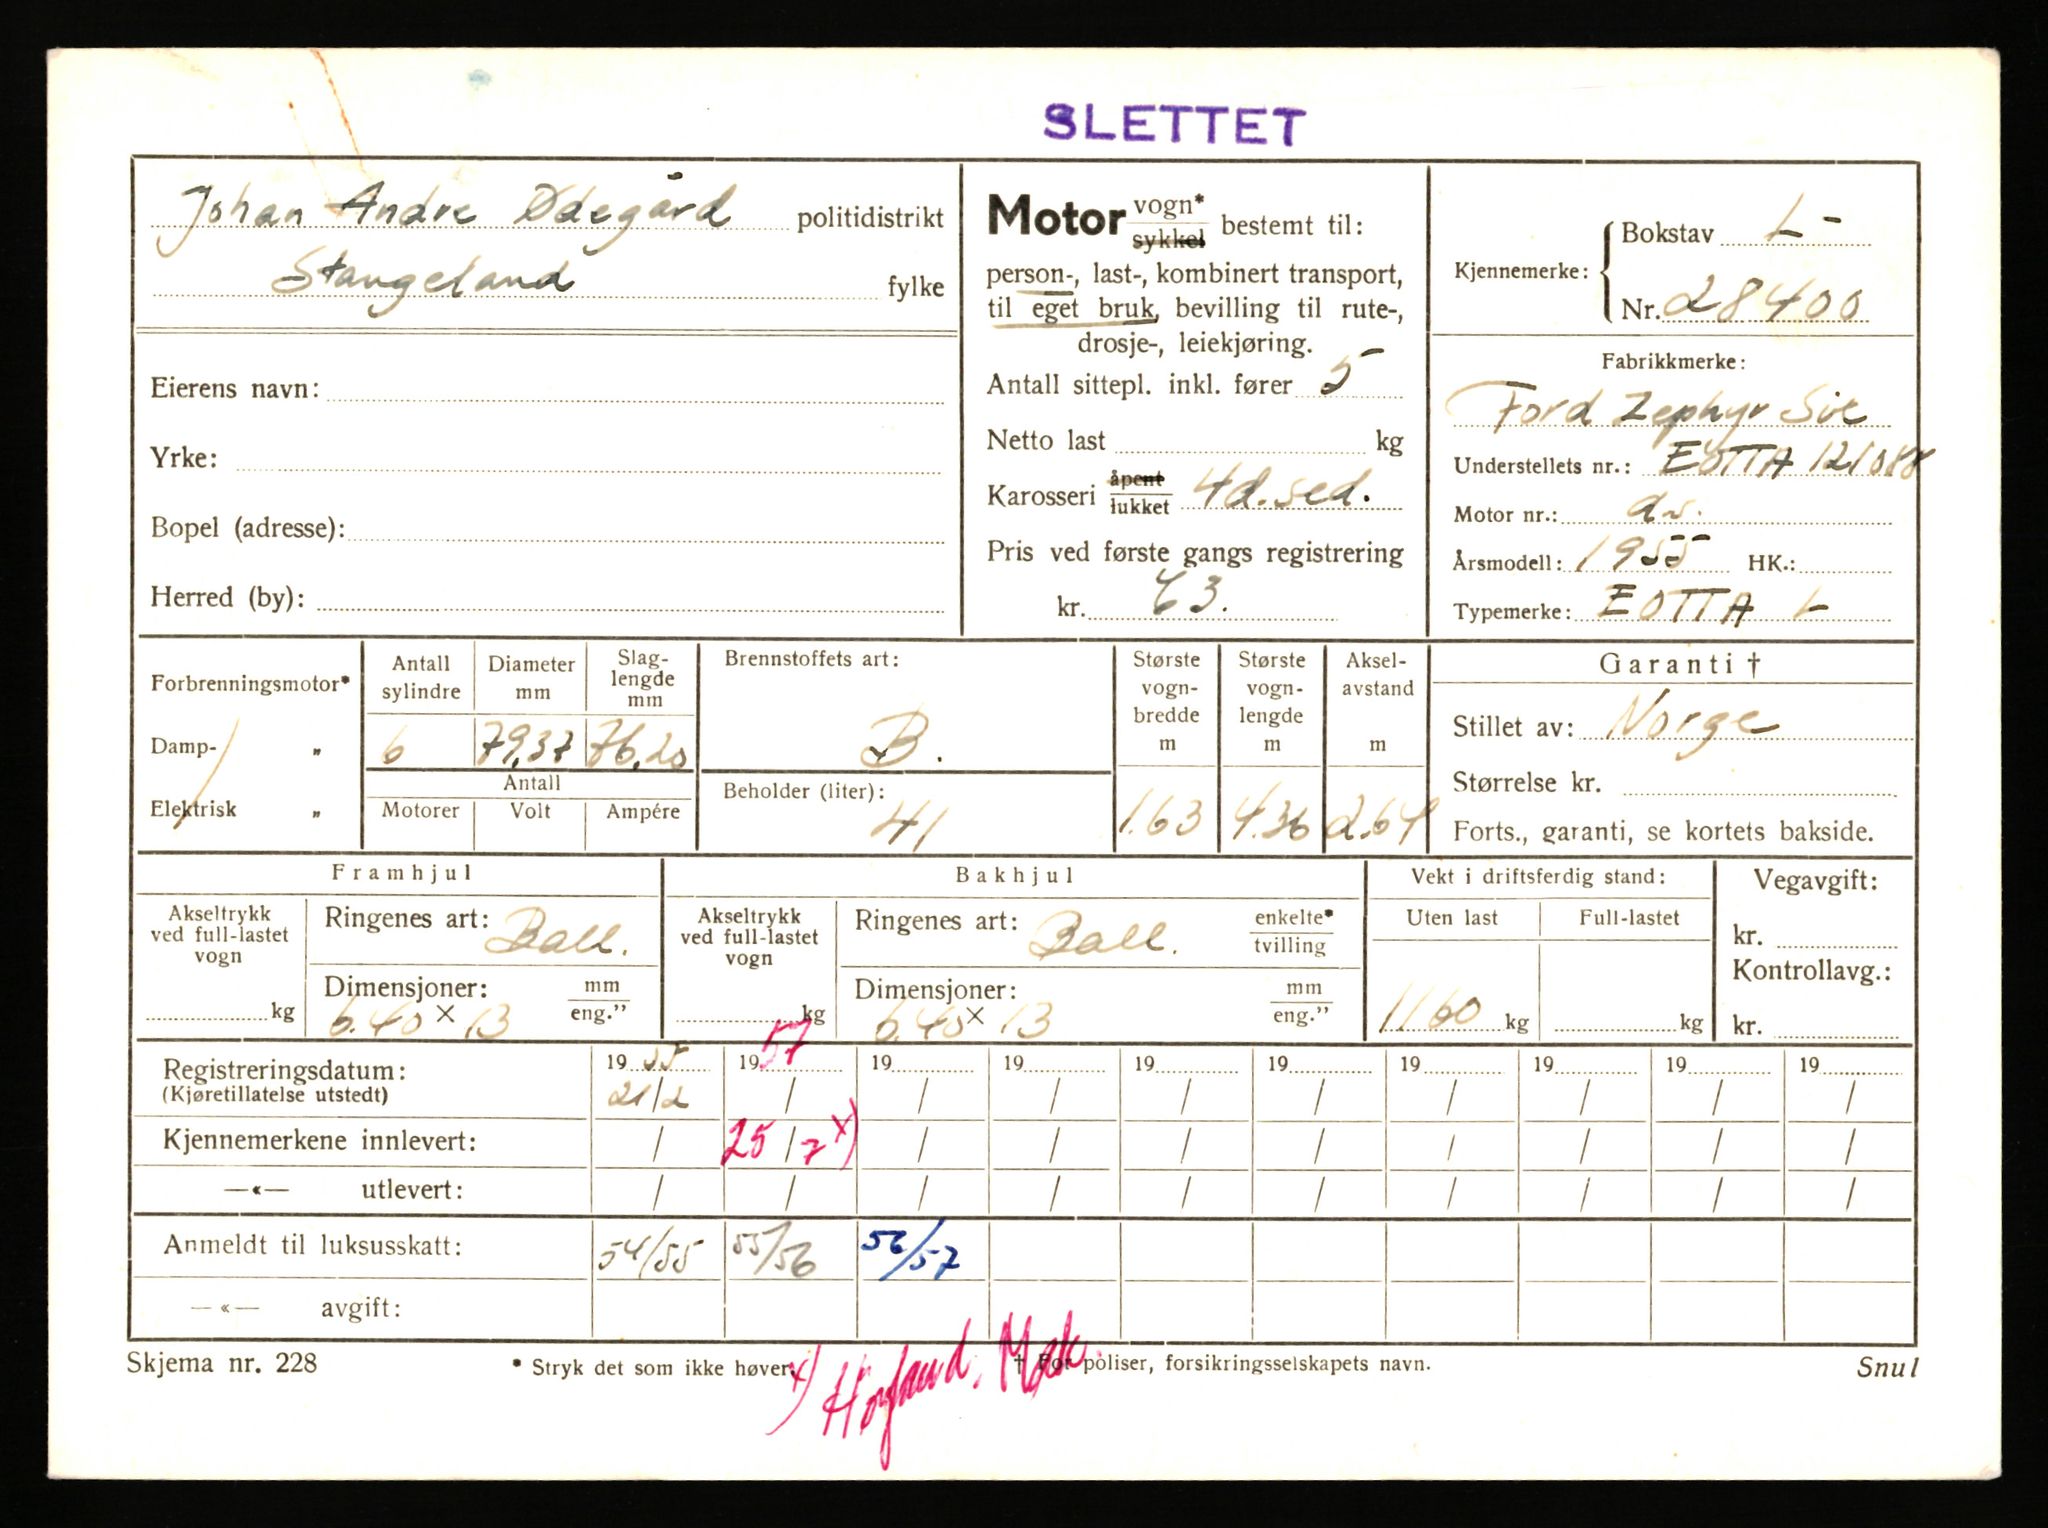 SLETTET
Johan Andre Ødegård politidistrikt
Stangeland fylke
Eierens navn:
Yrke:
Bopel (adresse):
Herred (by):
Motor vogn* sykkel bestemt til:
person-, last-, kombinert transport,
til eget bruk, bevilling til rute-,
drosje-, leiekjøring.
Antall sittepl. inkl. fører 5
Netto last kg
Karosseri åpent lukket 4d. sed.
Pris ved første gangs registrering
kr. 63.
Kjennemerke: Bokstav L-
Nr. 28400
Fabrikkmerke:
Ford Zephyr Six
Understellets nr.: EOTTA 121088
Motor nr.:
Årsmodell: 1955 HK.:
Typemerke: EOTTA L
Forbrenningsmotor*
Damp- „
Elektrisk „
Antall sylindre
6
Diameter mm
79,37
Slag-lengde mm
76,20
Antall
Motorer Volt Ampére
Brennstoffets art:
B.
Beholder (liter):
41
Største vogn-bredde m
1.63
Største vogn-lengde m
4.36
Aksel-avstand m
2.64
Garanti †
Stillet av: Norge
Størrelse kr.
Forts., garanti, se kortets bakside.
Framhjul
Akseltrykk ved full-lastet vogn
kg
Ringenes art: Ball.
Dimensjoner: mm eng.”
6.40 × 13
Bakhjul
Akseltrykk ved full-lastet vogn
kg
Ringenes art: Ball. enkelte* tvilling
Dimensjoner: mm eng.”
6.40 × 13
Vekt i driftsferdig stand:
Uten last Full-lastet
1160 kg kg
Vegavgift:
kr.
Kontrollavg.:
kr.
Registreringsdatum: 19 55 19 57 19 19 19 19 19 19 19 19
(Kjøretillatelse utstedt) 21/2 / / / / / / / / /
Kjennemerkene innlevert: / 25/7 x) / / / / / / / /
—«— utlevert: / / / / / / / / / /
Anmeldt til luksusskatt: 54/55 55/56 56/57
—«— avgift:
Skjema nr. 228 * Stryk det som ikke høver. † For poliser, forsikringsselskapets navn. Snul
x) Høyland. Mek.